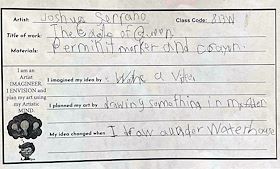 Artist: Joshua Serrano Class Code: 213W
Title of work: The Eagle of Queen
Materials: Perminit marker and crayon.
I am an
Artist
IMAGINEER.
I ENVISION and
plan my art using
my Artistic
MIND.
I imagined my idea by Make a
I planned my art by drawing something in my
My idea changed when I traw a under Waterhouse